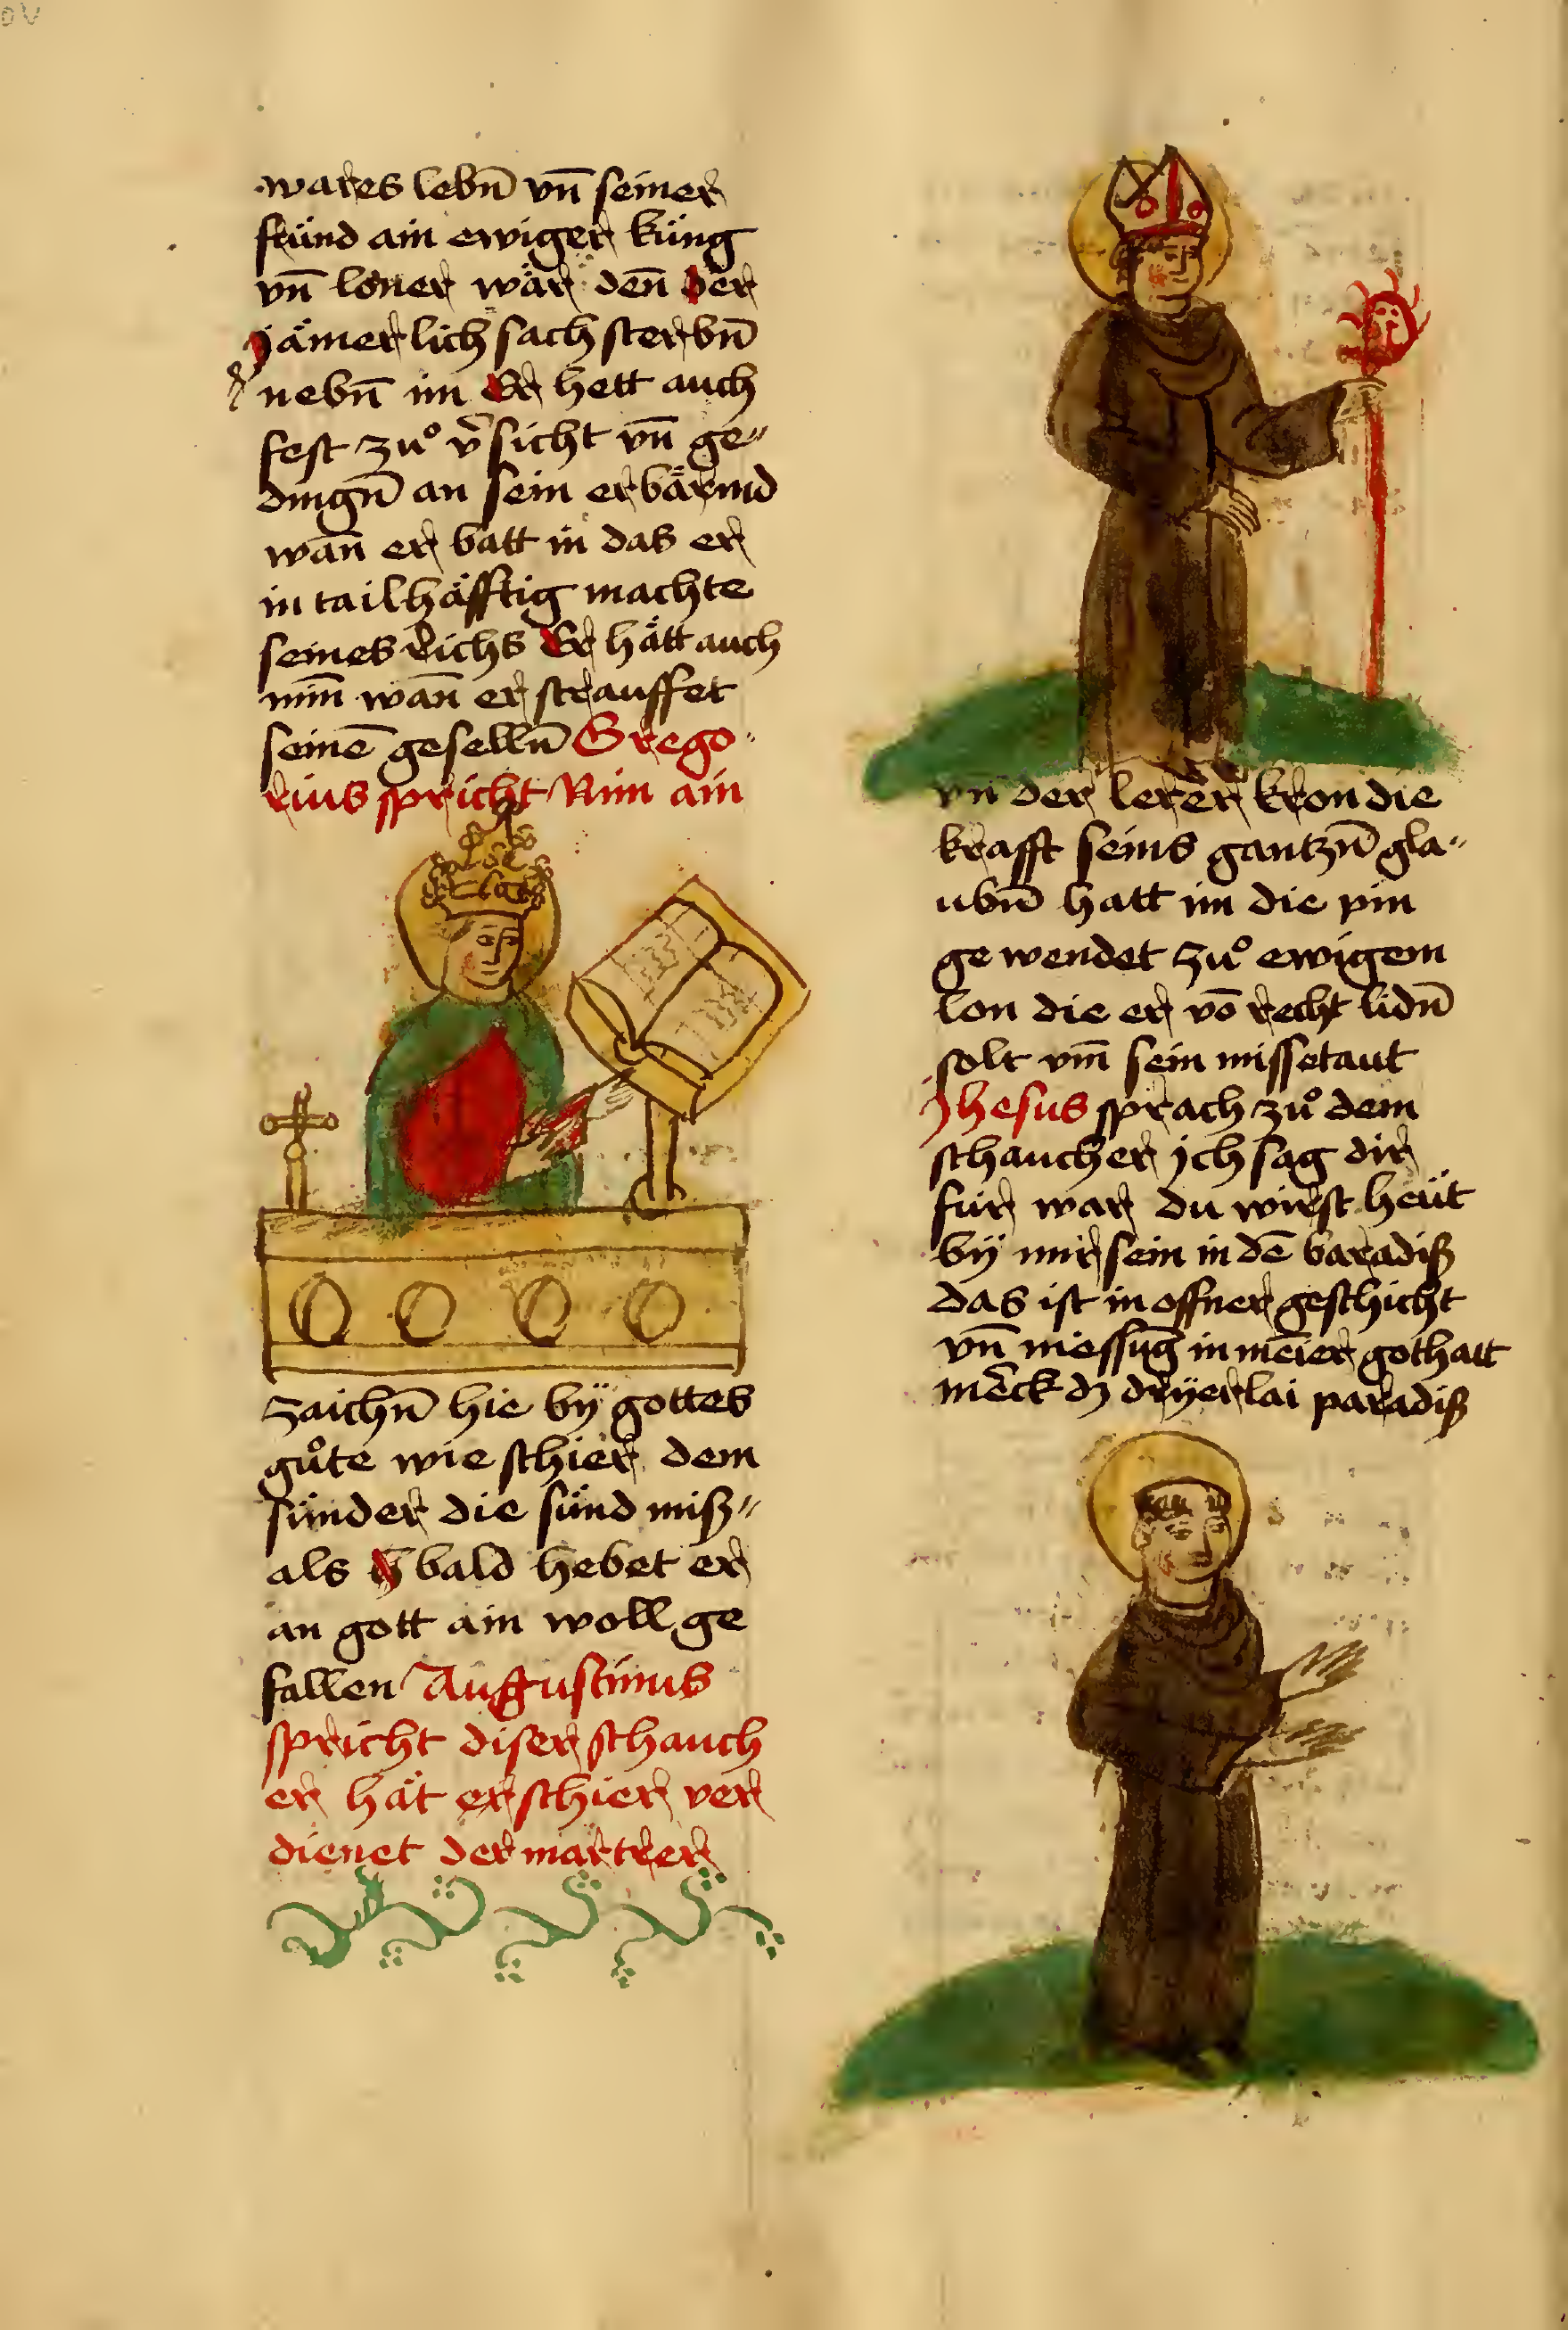 wares lebn̄ vn̄ seiner
fräund ain ewiger küng
vn̄ loner wär den̄ der
jämerlich sach sterbn̄
nebn̄ im Er hett auch
fest zuͦ v̄sicht vn̄ ge„
dingn̄ an sein erbärmd
wan̄ er batt in das er
in tailhäfftig machte
seines richs Er hätt auch
min̄ wan̄ er strauffet
seinē geselln̄ Grego
rius spricht Nim ain
zaichn̄ hie bÿ gottes
guͦte wie schier dem
sünder die sünd miß„
als bald hebet er
an gott ain woll ge
fallen Augustinus
spricht diser schauch
er hät er schier ver
dienet der martrer
vn̄ der lerer kron die
krafft seins gantzn̄ gla„
ubn̄ hatt im die pin
ge wendet zuͦ ewigem
lon die er vō recht lidn̄
solt vm̄ sein missetaut
Jhesus sprach zuͦ dem
schaucher jch sag dir
fur war du wirst heüt
bÿ mir sein in dē baradiß
das ist in offner geschicht
vn̄ niessūg in mēier gothatt
mēck dz drÿerlai paradiß